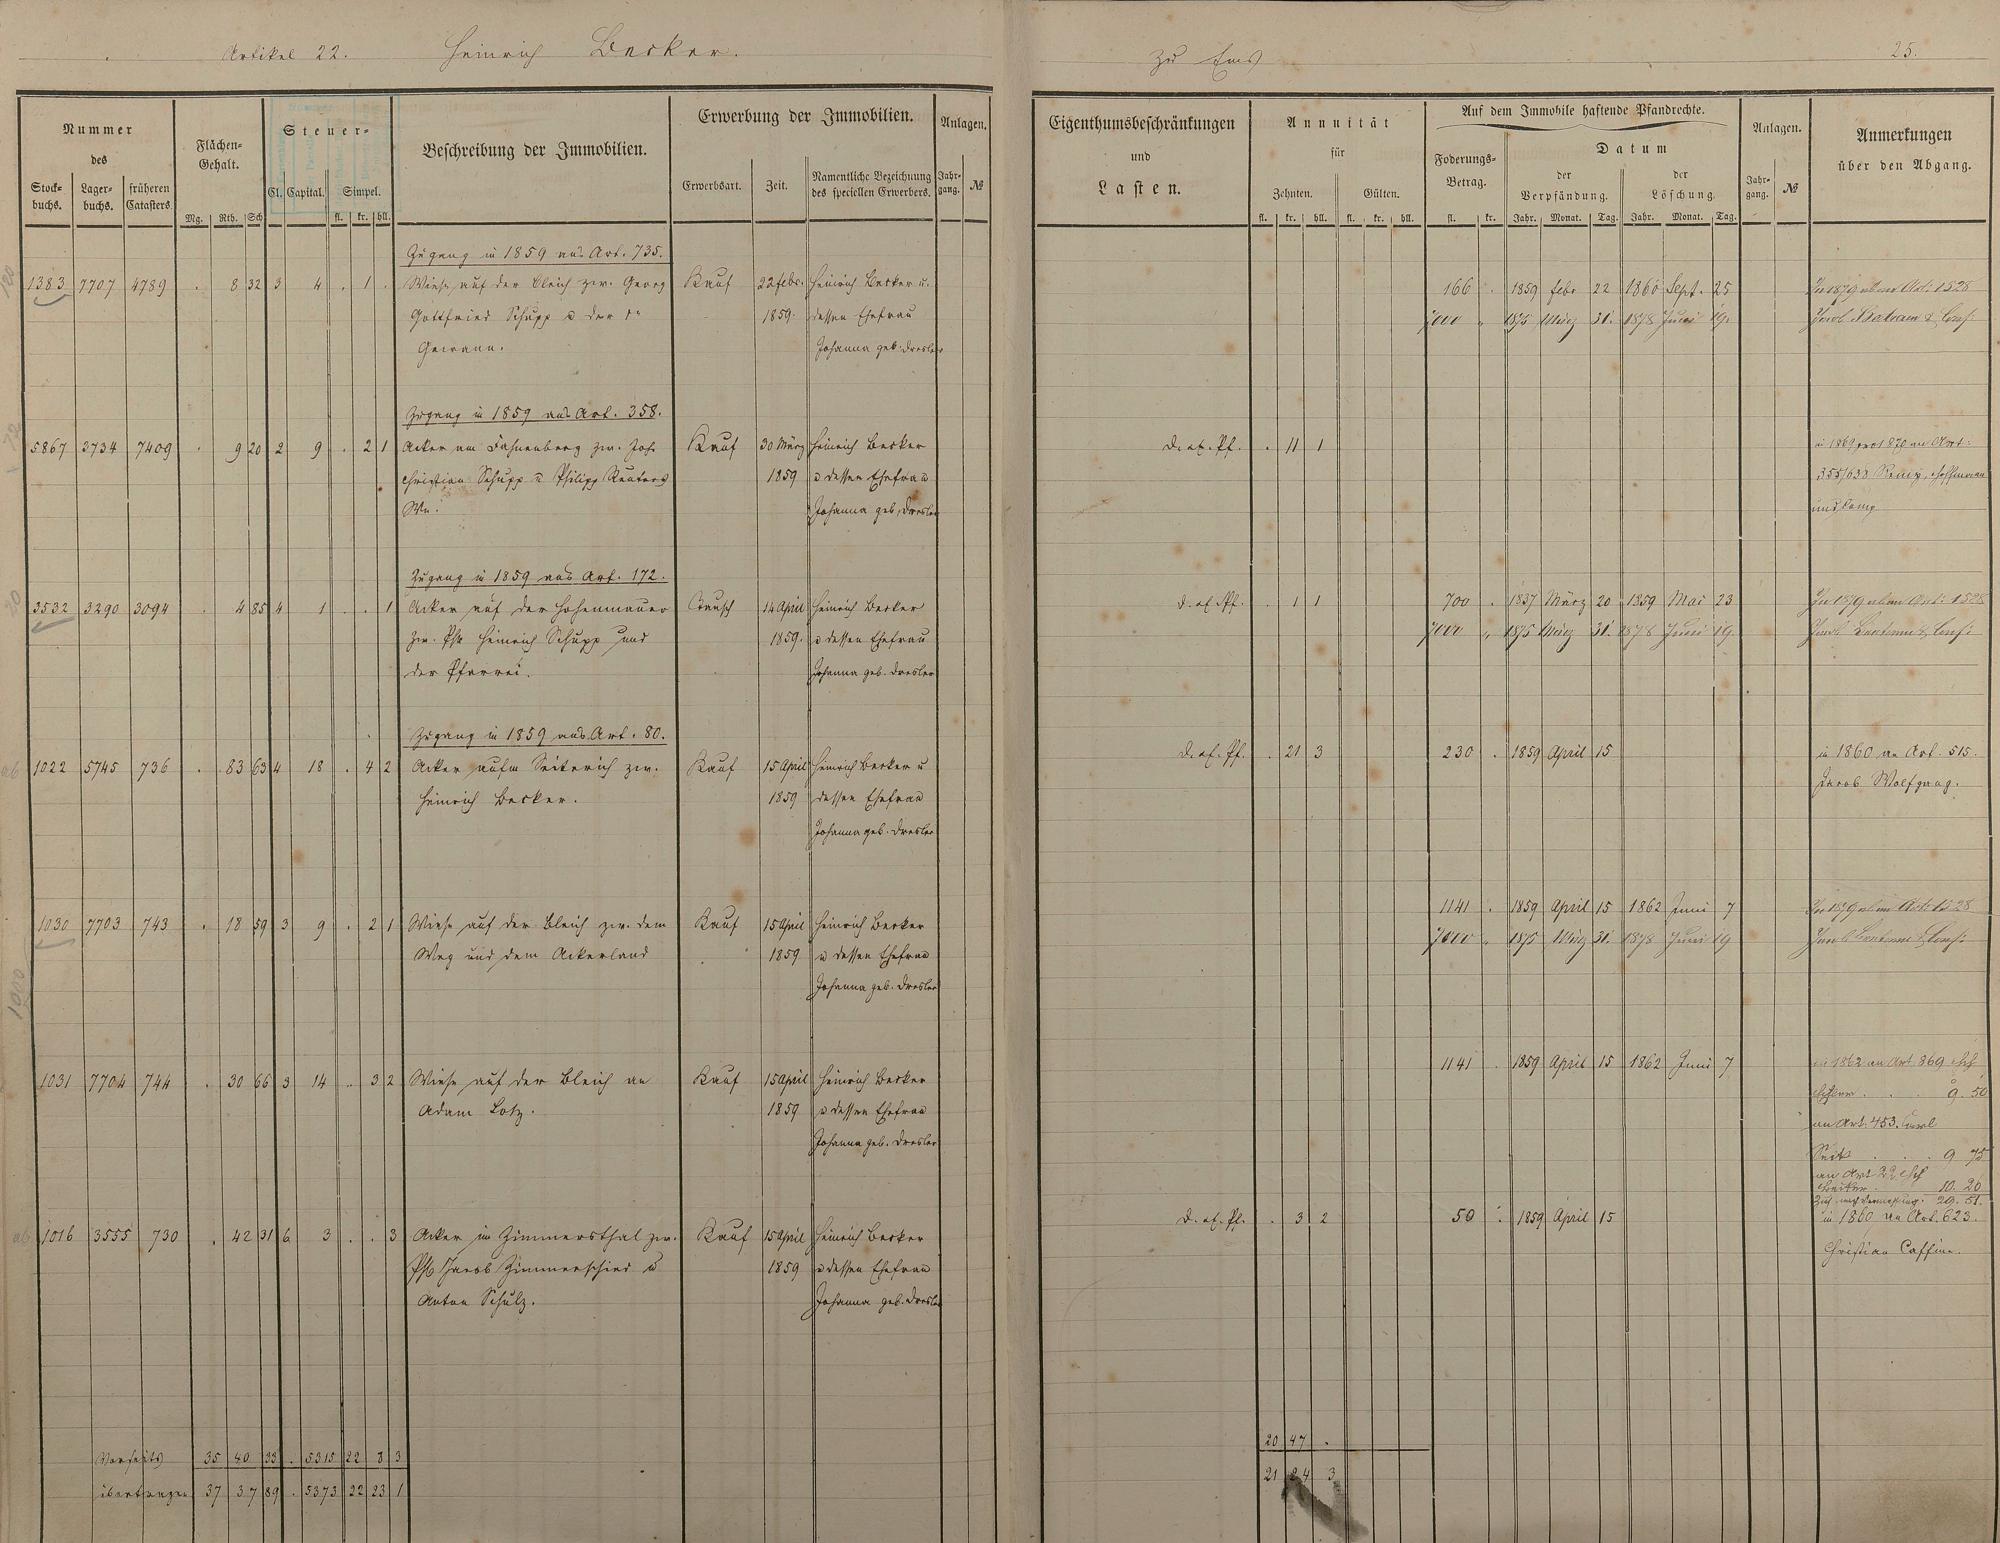 Artikel 22. Heinrich Becker.
zu Ems
25.
Nummer
des
Stock-
buchs.
Lager-
buchs.
früheren
Catasters.
Flächen-
Gehalt.
Mg. Rth. Sch
Steuer-
Cl. Capital. Simpel.
fl. kr. hll.
Beschreibung der Immobilien.
Erwerbung der Immobilien.
Erwerbsart. Zeit.
Namentliche Bezeichnung
des speciellen Erwerbers.
Anlagen.
Jahr-
gang. №
Eigenthumsbeschränkungen
und
Lasten.
Annuität
für
Zehnten. Gülten.
fl. kr. hll. fl. kr. hll.
Auf dem Immobile haftende Pfandrechte.
Foderungs-
Betrag.
fl. kr.
Datum
der
Verpfändung.
Jahr. Monat. Tag.
der
Löschung.
Jahr. Monat. Tag.
Anlagen.
Jahr-
gang. №
Anmerkungen
über den Abgang.
Zugang in 1859 aus Art. 735.
1383 7707 4789 . 8 32 3 4 . 1 . Wiese auf der Bleich zw. Georg Kauf 22 febr. Heinrich Becker u. 166 . 1859 febr 22 1860 Sept. 25 In 1879 Art. 1528
Gottfried Schupp u der 1859. dessen Ehefrau 7000 " 1875 März 31. 1878 Juni 19.
Gewann. Johanna geb. Dresler
Zugang in 1859 aus Art. 358.
5867 3734 7409 . 9 20 2 9 . 2 1 Acker am Fahnenberg zw. Joh. Kauf 30 März Heinrich Becker D. . Pf. . 11 1 in 1869 1870 an Art:
Christian Schupp u Philipp Reuters 1859 u dessen Ehefrau 355/638 Hoffmann
We. Johanna geb. Dresler und
Zugang in 1859 aus Art. 172.
3532 3290 3094 . 4 85 4 1 . . 1 Acker auf der Hohenmauer Tausch 14 April Heinrich Becker d. . Pf. . 1 1 700 . 1837 März 20 1859 Mai 23 In 1879 Art: 1528
zw. Heinrich Schupp und 1859. u dessen Ehefrau 7000 " 1875 März 31. 1878 Juni 19.
der Pfarrei. Johanna geb. Dresler
Zugang in 1859 aus Art. 80.
ab 1022 5745 736 . 83 63 4 18 . 4 2 Acker aufm Seiterich zw. Kauf 15 April Heinrich Becker u D. . Pf. . 21 3 230 . 1859 April 15 in 1860 an Art. 515.
Heinrich Becker. 1859 dessen Ehefrau Jacob Wolfgang.
Johanna geb. Dresler
1030 7703 743 . 18 59 3 9 . 2 1 Wiese auf der Bleich zw. dem Kauf 15 April Heinrich Becker 1141 . 1859 April 15 1862 Juni 7 In 1879 Art: 1528
Weg und dem Ackerland 1859 u dessen Ehefrau 7000 " 1875 März 31. 1878 Juni 19
1000 Johanna geb. Dresler
1031 7704 744 . 30 66 3 14 . 3 2 Wiese auf der Bleich an Kauf 15 April Heinrich Becker 1141 . 1859 April 15 1862 Juni 7 in 1862 an Art. 869
Adam Lotz. 1859 u dessen Ehefrau 9. 50
Johanna geb. Dresler an Art. 453. Carl
9 75
an Art 22
Becker. 10. 20
20. 51.
ab 1016 3555 730 . 42 31 6 3 . . 3 Acker im Zimmersthal zw. Kauf 15 April Heinrich Becker D. . Pf. . 3 2 50 . 1859 April 15 in 1860 an Art. 623.
Jacob Zimmerschied u 1859 u dessen Ehefrau Christian Caffine.
Anton Schulz. Johanna geb. Dresler
20 47 .
Vorseits 35 40 33 . 5315 22 8 3
21 24 3
übertragen 37 37 89 . 5373 22 23 1